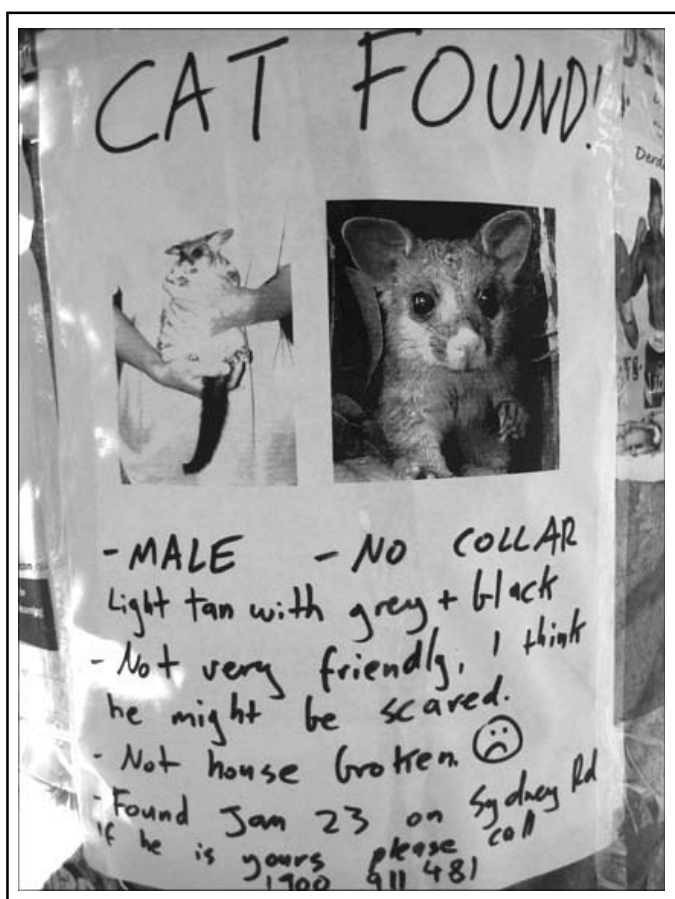 CAT FOUND!
Derda
- MALE - NO COLLAR
Light tan with grey + black
- Not very friendly, I think
he might be scared.
- Not house broken.
- Found Jan 23 on Sydney Rd
If he is yours please call
1900 911 481